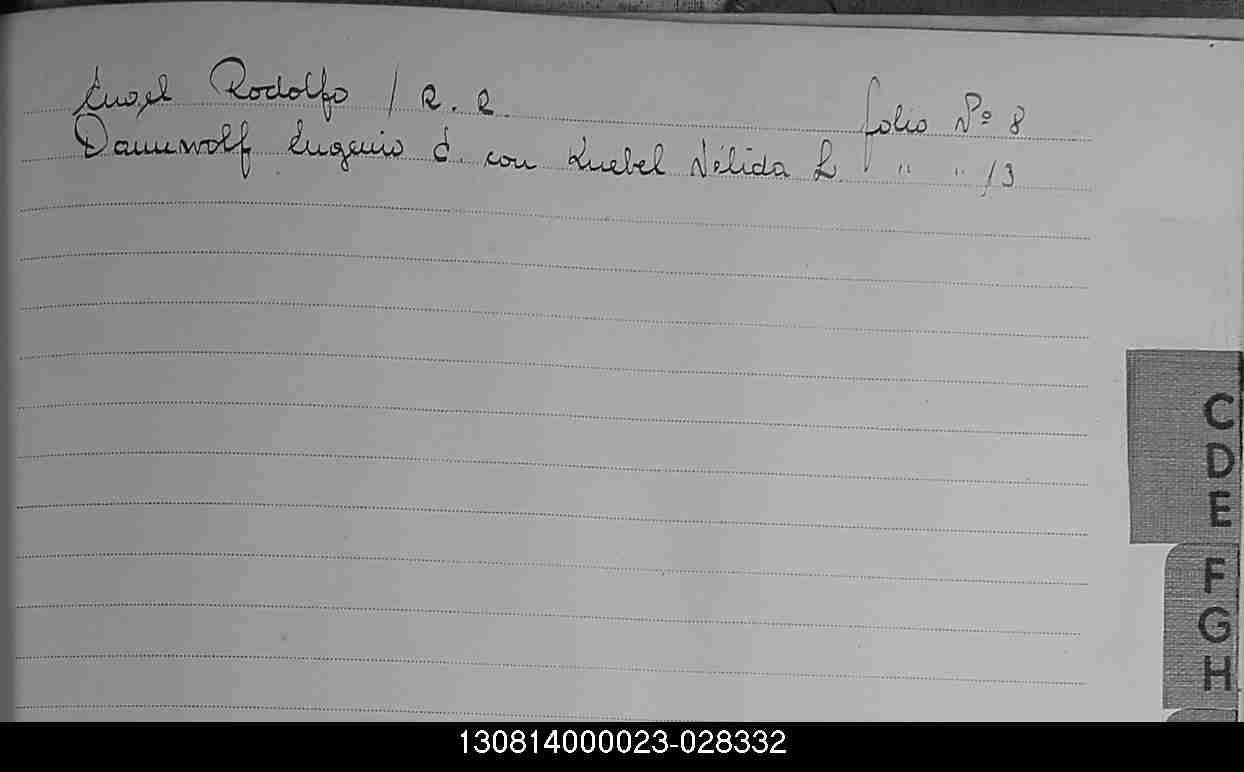 Engel Rodolfo / R. R. folio Nº 8
Dannwolf Eugenio E. con Knebel Nélida L. " " 13
C
D
E
F
G
H
130814000023-028332